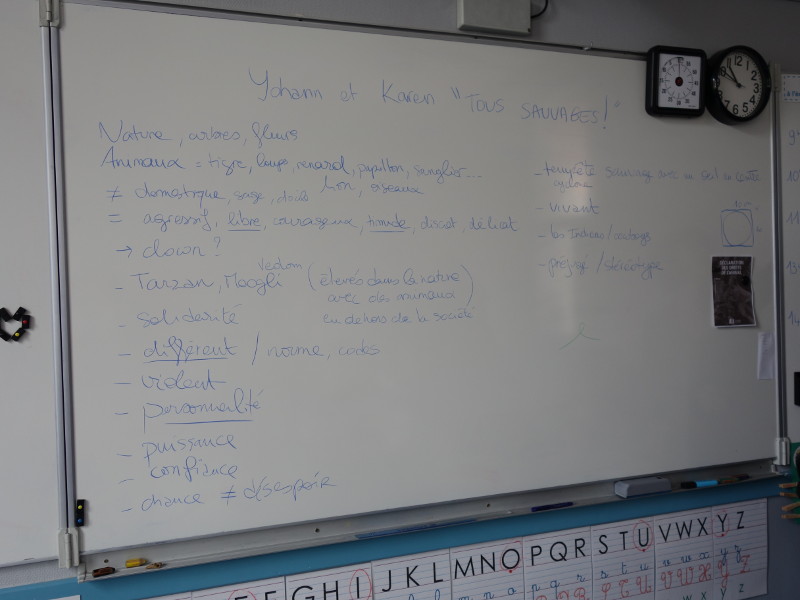 Yohann et Karen "TOUS SAUVAGES!"
Nature, arbres, fleurs
Animaux = tigre, loups, renard, papillon, sanglier...
lion, oiseaux
≠ domestique, sage, docile
= agressif, libre, courageux, timide, discret, délicat
→ clown?
- Tarzan, Moogli (élevés dans la nature
avec des animaux)
en dehors de la société
- solidarité
- différent / norme, codes
- violent
- personnalité
- puissance
- confiance
- chance ≠ désespoir
- tempête sauvage avec un seul
cyclone
- vivant
- les Indiens / sauvages
- préjugé / stéréotype
DÉCLARATION
DES DROITS
DE L'HOMME
G H I J K L M N O P Q R S T U V W X Y Z